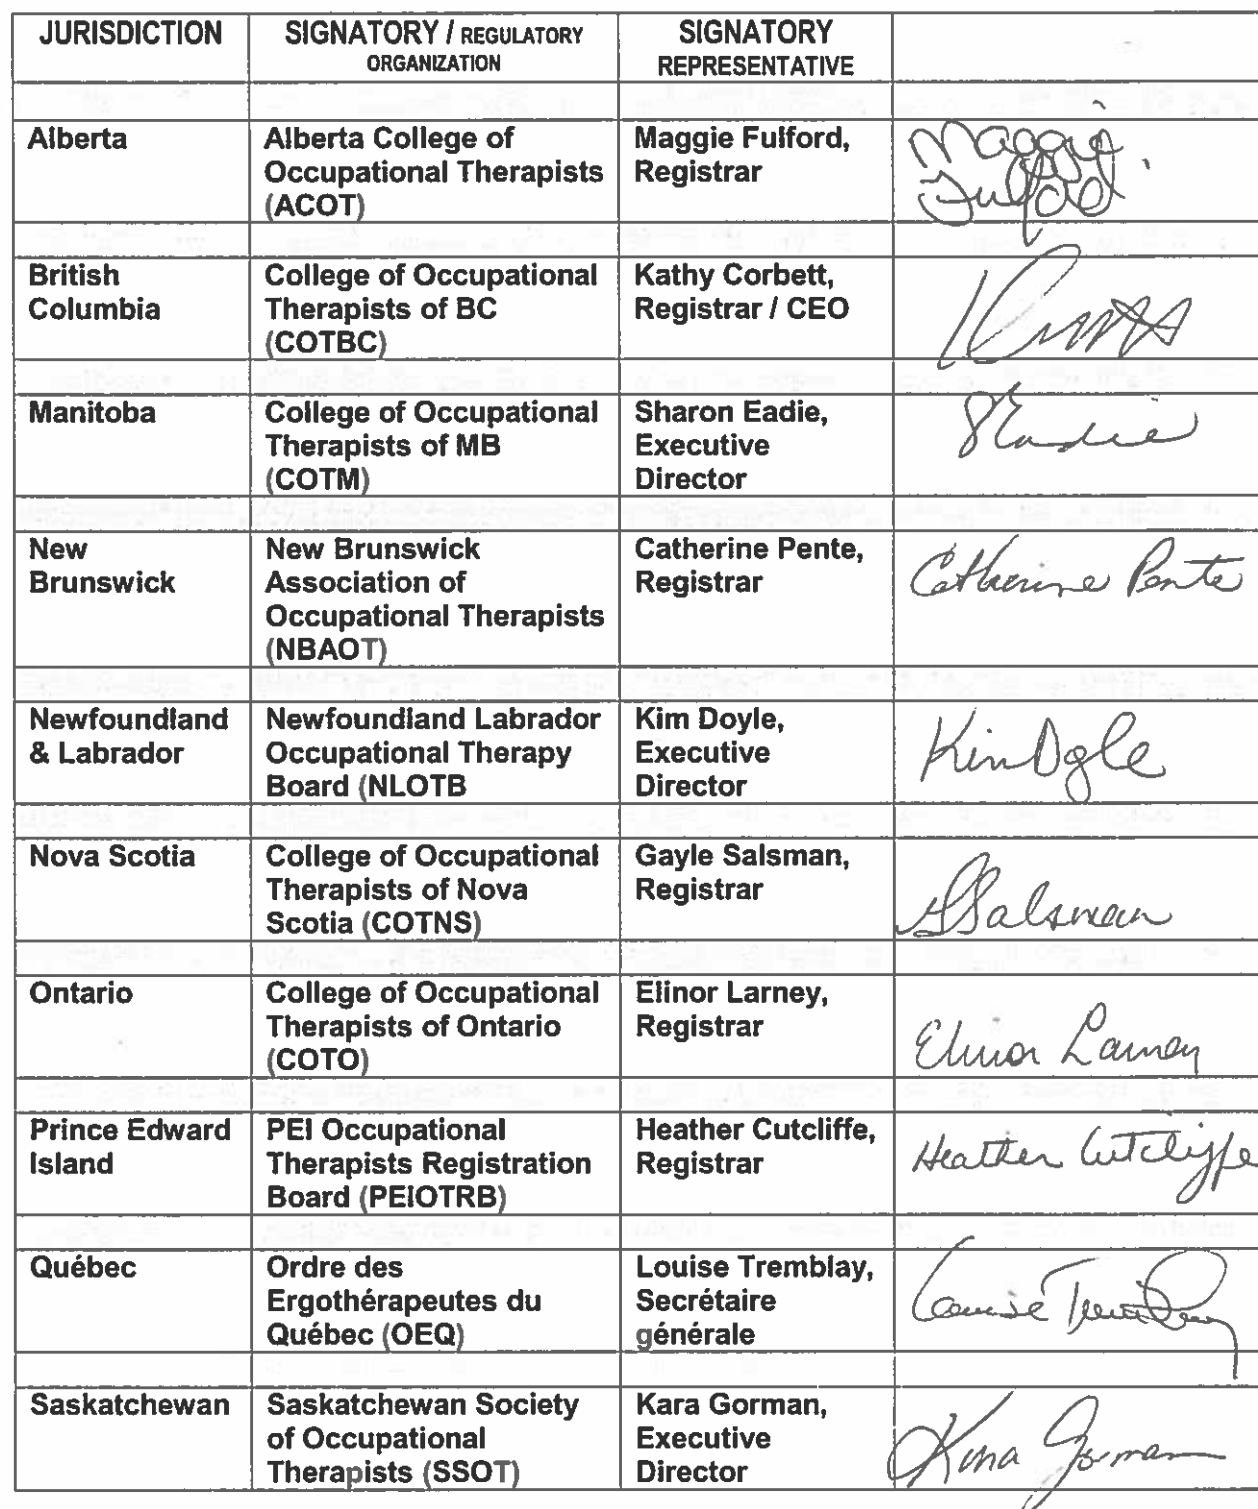 JURISDICTION
SIGNATORY / REGULATORY
ORGANIZATION
SIGNATORY
REPRESENTATIVE
Alberta
Alberta College of
Occupational Therapists
(ACOT)
Maggie Fulford,
Registrar
Maggie
Fulford
British
Columbia
College of Occupational
Therapists of BC
(COTBC)
Kathy Corbett,
Registrar / CEO
Manitoba
College of Occupational
Therapists of MB
(COTM)
Sharon Eadie,
Executive
Director
SEadie
New
Brunswick
New Brunswick
Association of
Occupational Therapists
(NBAOT)
Catherine Pente,
Registrar
Catherine Pente
Newfoundland
& Labrador
Newfoundland Labrador
Occupational Therapy
Board (NLOTB
Kim Doyle,
Executive
Director
Kim Doyle
Nova Scotia
College of Occupational
Therapists of Nova
Scotia (COTNS)
Gayle Salsman,
Registrar
GSalsman
Ontario
College of Occupational
Therapists of Ontario
(COTO)
Elinor Larney,
Registrar
Elinor Larney
Prince Edward
Island
PEI Occupational
Therapists Registration
Board (PEIOTRB)
Heather Cutcliffe,
Registrar
Heather Cutcliffe
Québec
Ordre des
Ergothérapeutes du
Québec (OEQ)
Louise Tremblay,
Secrétaire
générale
Louise Tremblay
Saskatchewan
Saskatchewan Society
of Occupational
Therapists (SSOT)
Kara Gorman,
Executive
Director
Kara Gorman